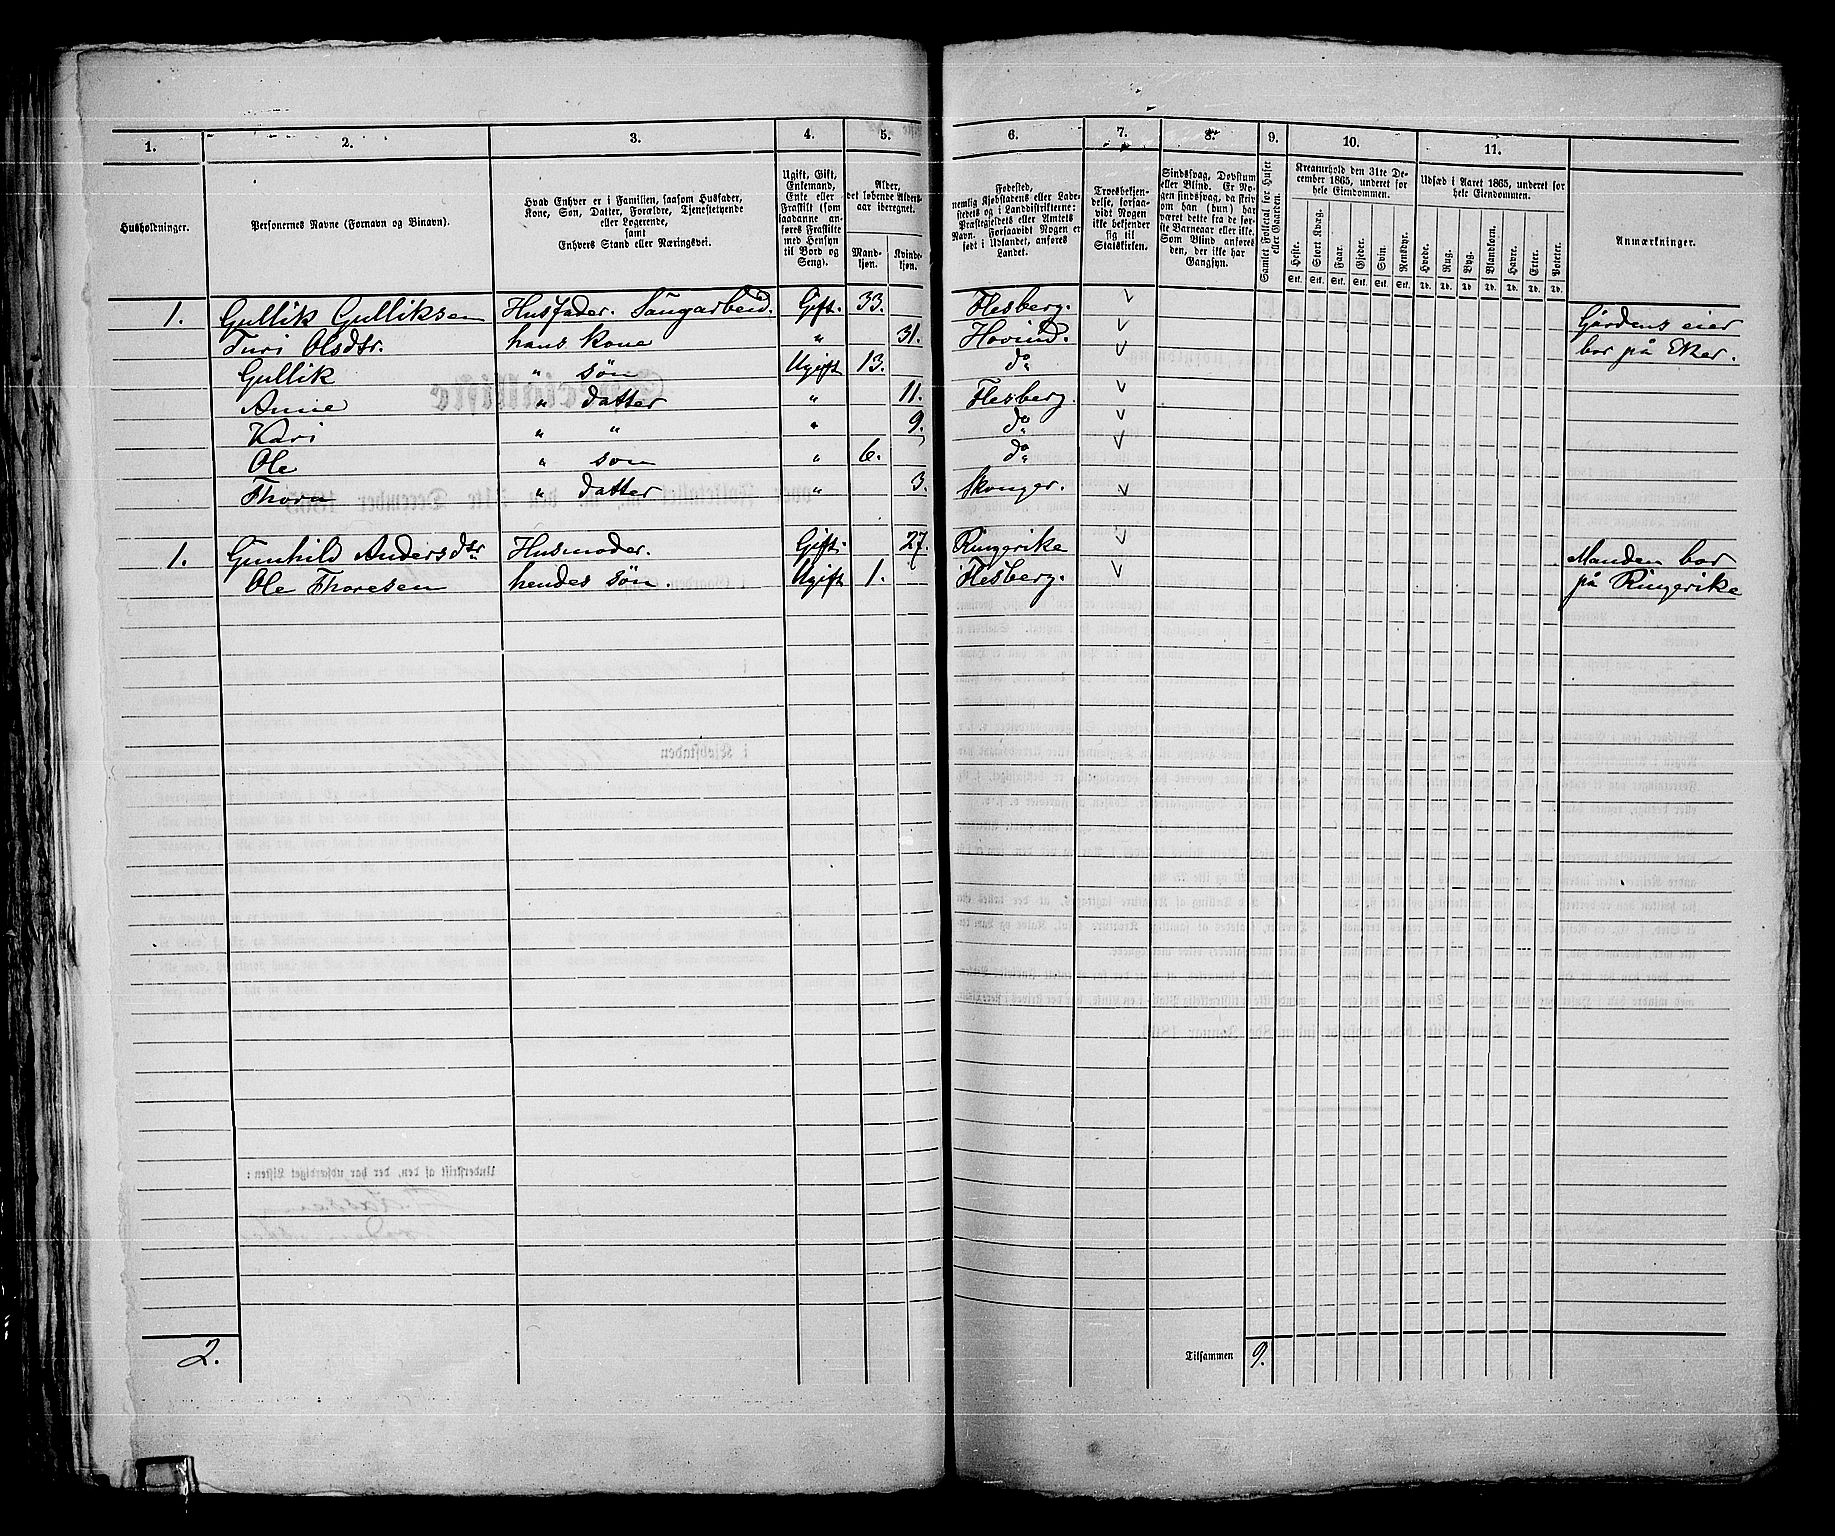 1.
2.
3.
4.
5.
6.
7.
8.
9.
10.
11.
Husholdninger.
Personernes Navne (Fornavn og Binavn).
Hvad Enhver er i Familien, saasom Husfader,
Kone, Søn, Datter, Forældre, Tjenestetyende
eller Logerende,
samt
Enhvers Stand eller Næringsvei.
Ugift, Gift,
Enkemand,
Enke eller
Fraskilt (som
saadanne an-
føres Fraskilte
med Hensyn
til Bord og
Seng).
Alder,
det løbende Alders-
aar iberegnet.
Mand-
kjøn.
Kvinde-
kjøn.
Fødested,
nemlig Kjøbstadens eller Lade-
stedets og i Landdistrikterne:
Præstegjeldets eller Amtets
Navn. Forsaavidt Nogen er
født i Udlandet, anføres
Landet.
Troesbekjen-
delse, forsaa-
vidt Nogen
ikke bekjender
sig til
Statskirken.
Sindssvag, Døvstum
eller Blind. Er No-
gen sindssvag, da skriv
om han (hun) har
været dette fra de før-
ste Barneaar eller ikke.
Som Blind anføres
den, der ikke har
Gangsyn.
Samlet Folketal for Huset
eller Gaarden.
Kreaturhold den 31te De-
cember 1865, underet for
hele Eiendommen.
Heste.
Stort Kvæg.
Faar.
Gjeder.
Svin.
Rensdyr.
Stk. Stk. Stk. Stk. Stk. Stk.
Udsæd i Aaret 1865, underet for
hele Eiendommen.
Hvede.
Rug.
Byg.
Blandkorn.
Havre.
Erter.
Poteter.
Td. Td. Td. Td. Td. Td. Td.
Anmærkninger.
1. Gullik Gulliksen Husfader. Saugarbeid. Gift. 33. Flesberg. Gårdens eier
Turi Olsdtr. hans kone " 31. Hovind. bor på Eker.
Gullik " søn Ugift 13. do
Anne " datter " 11. Flesberg.
Kari " " " 9. do
Ole " søn " 6. do
Thora " datter " 3. Skonger.
1. Gunhild Andersdtr Husmoder. Gift. 27. Ringerike Manden bor
Ole Thoresen hendes søn. Ugift 1. Flesberg. på Ringerike
2.
Tilsammen 9.